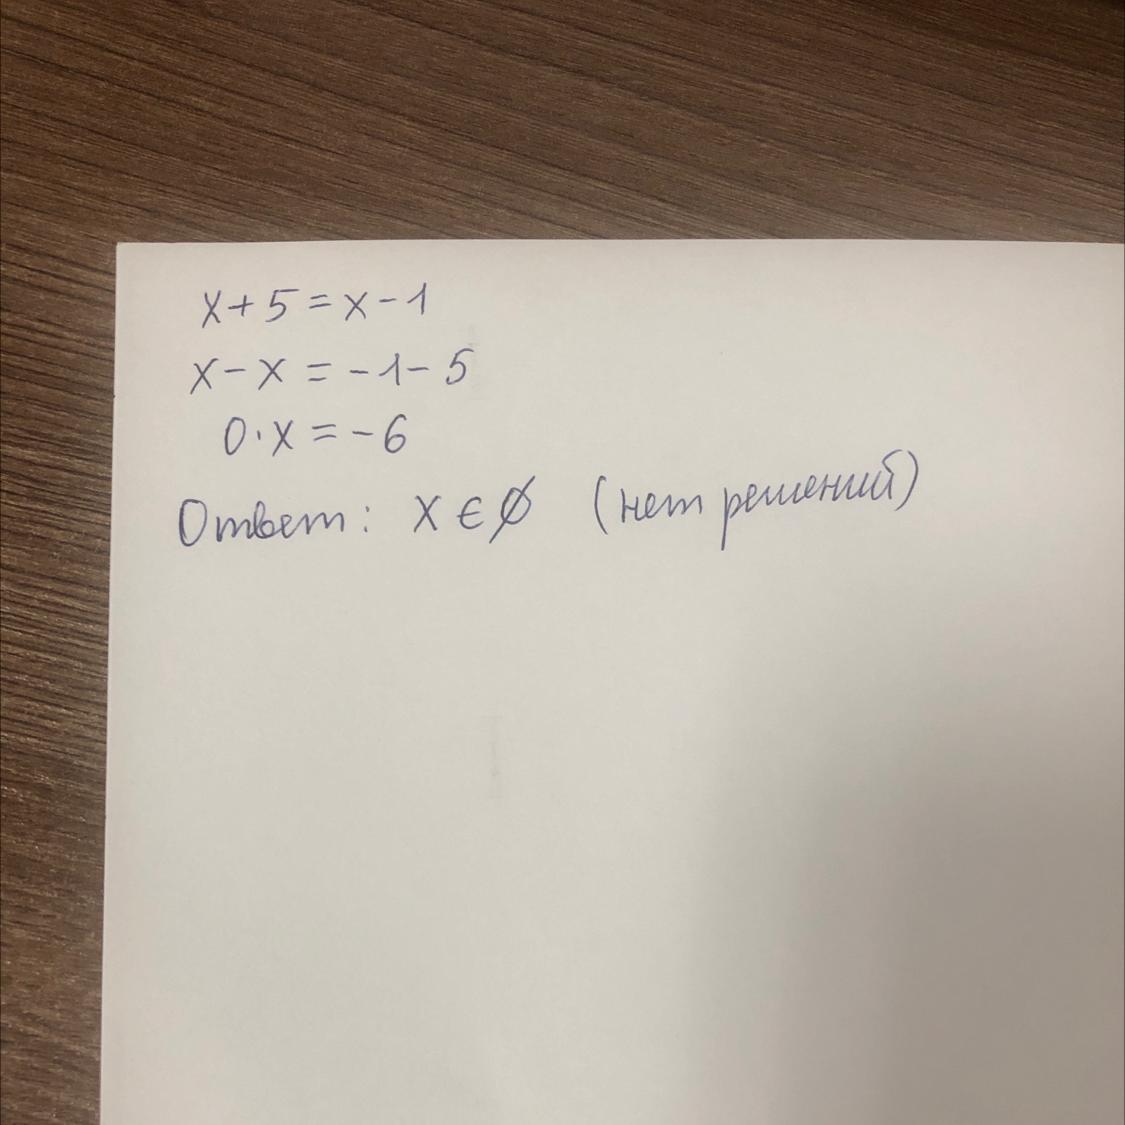 x+5=x-1
x-x=-1-5
0·x=-6
Ответ: x∈∅ (нет решений)